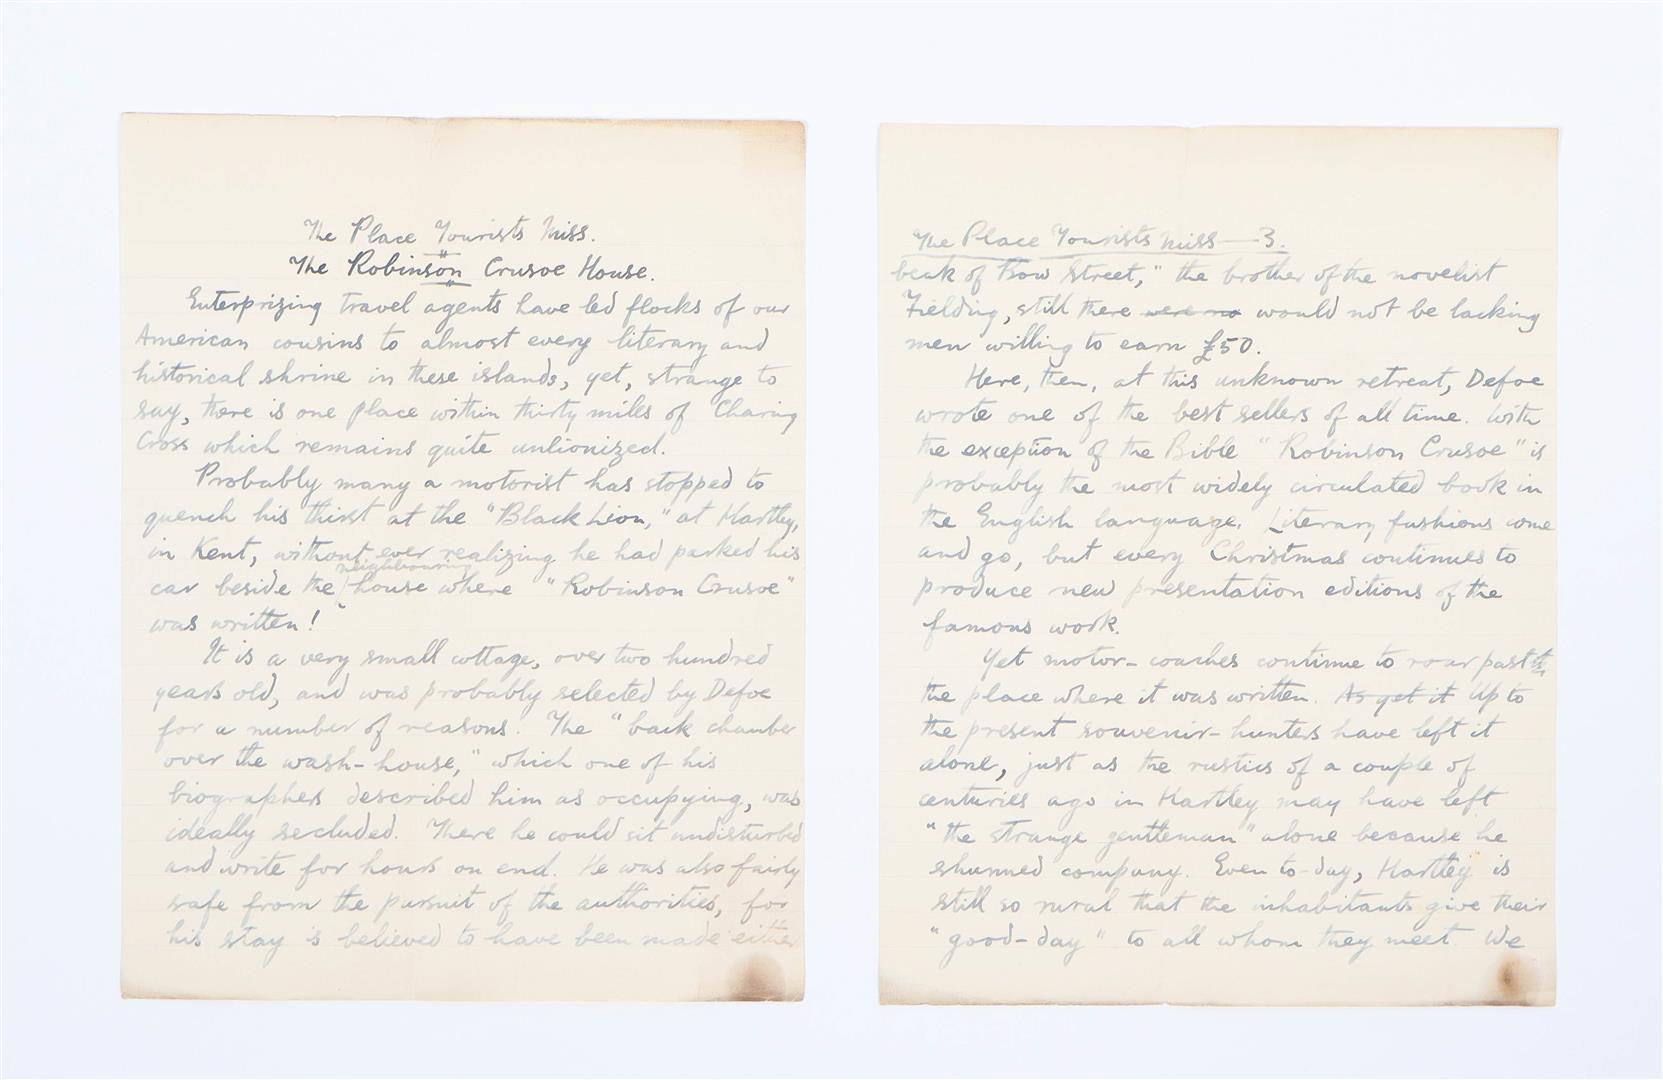 The Place Tourists Miss.
The Robinson Crusoe House.
Enterprizing travel agents have led flocks of our
American cousins to almost every literary and
historical shrine in these islands, yet, strange to
say, there is one place within thirty miles of Charing
Cross which remains quite unlionized.
Probably many a motorist has stopped to
quench his thirst at the "Black Lion," at Hartley,
in Kent, without ever realizing he had parked his
neighbouring
car beside the house where "Robinson Crusoe"
was written!
It is a very small cottage, over two hundred
years old, and was probably selected by Defoe
for a number of reasons. The "back chamber
over the wash-house," which one of his
biographers described him as occupying, was
ideally secluded. There he could sit undisturbed
and write for hours on end. He was also fairly
safe from the pursuit of the authorities, for
his stay is believed to have been made either
The Place Tourists Miss—3.
beak of Bow Street," the brother of the novelist
Fielding, still there were no would not be lacking
men willing to earn £50.
Here, then, at this unknown retreat, Defoe
wrote one of the best sellers of all time. With
the exception of the Bible "Robinson Crusoe" is
probably the most widely circulated book in
the English language. Literary fashions come
and go, but every Christmas continues to
produce new presentation editions of the
famous work.
Yet motor-coaches continue to roar past
the place where it was written. As yet it Up to
the present souvenir-hunters have left it
alone, just as the rustics of a couple of
centuries ago in Hartley may have left
"the strange gentleman" alone because he
shunned company. Even to-day, Hartley is
still so rural that the inhabitants give their
"good-day" to all whom they meet. We